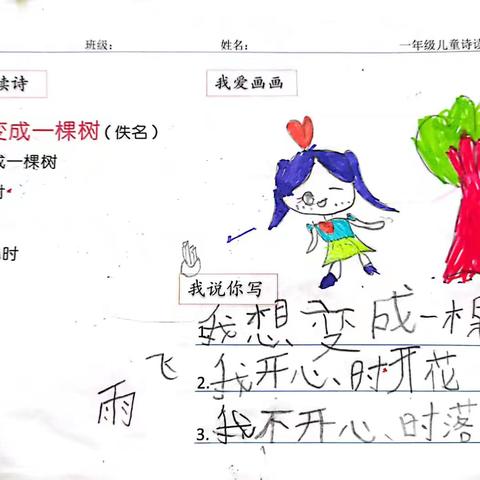 班级： 姓名： 一年级儿童诗读
读诗
我爱画画
变成一棵树（佚名）
成一棵树
时
时
我说你写
1. 我想变成一棵
飞
2. 我开心、时开花
雨
3. 我不开心、时落